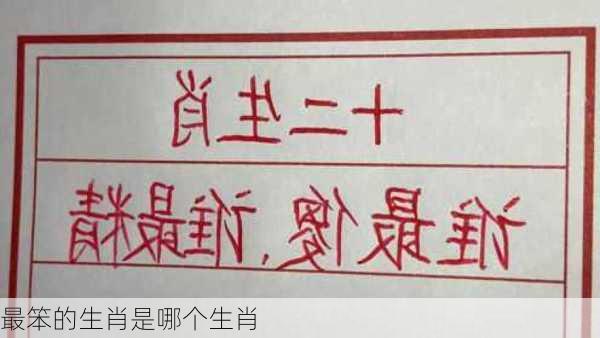 十二生肖
谁最傻,谁最精
最笨的生肖是哪个生肖